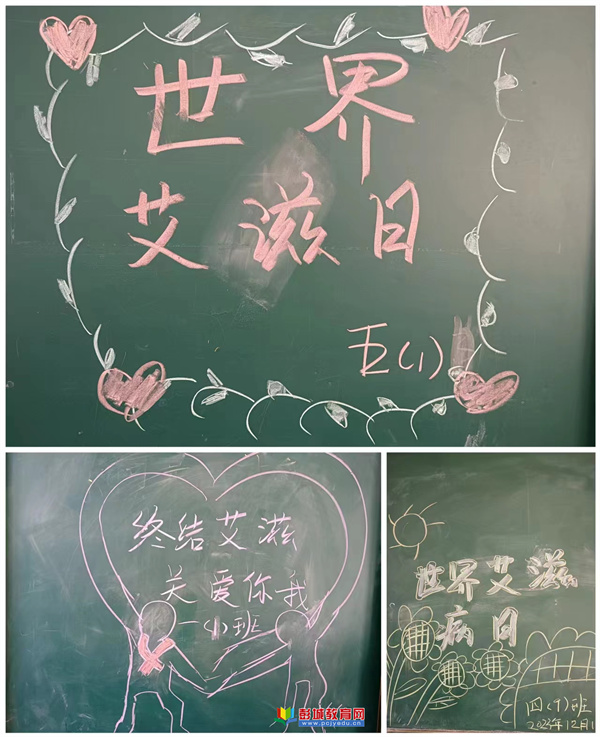 世界
艾滋日
五(1)
终结艾滋
关爱你我
一(1)班
世界艾滋
病日
四(9)班
2023年12月1
彭城教育网
www.pcjyedu.cn